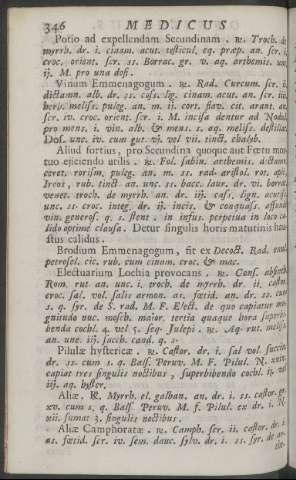 346 MEDICUS
Potio ad expellendam Secundinam. ℞. Troch. de
myrrh. dr. i. cinam. acut. testicul. eq. præp. an. scr. i.
croc. orient. scr. ss. Borrac. gr. v. aq. arthemis. unc.
ij. M. pro una dosi.
Vinum Emmenagogum. ℞. Rad. Curcum. scr. i.
dictamn. alb. dr. ss. cass. lig. cinam. acut. an. scr.
herb. meliss. puleg. an. m. ij. cort. flav. cit. arant. an.
scr. iv. croc. orient. scr. i. M. incisa dentur ad Nodul.
pro mens. i. vin. alb. & mens. s. aq. meliss. destillat.
Dos. unc. iv. cum gut. vj. vel vii. tinct. chalyb.
Aliud fortius, pro Secundina quoque aut Fœtu mor
tuo ejiciendo utilis. ℞. Fol. sabin. arthemis. dictamn.
cret. rorism. puleg. an. m. ss. rad. aristol. rot. apii,
Ireos, rub. tinct. an. unc. ss. bacc. laur. dr. vi. borrac.
venet. troch. de myrrh. an. dr. iij. cass. lign. acutiss.
unc. ss. croc. integ. dr. ii. incis. & conquass. affund.
vin. generos. q. s. stent. in infus. perpetua in loco ca
lido optimè clausa. Detur singulis horis matutinis hau
stus calidus.
Brodium Emmenagogum, fit ex Decoct. Rad.
petrosel. cic. rub. cum cinam. croc. & mac.
Electuarium Lochia provocans. ℞. Cons. absinth.
Rom. rut. an. unc. i. troch. de myrrh. dr. ii. castor.
croc. sal. vol. salis armon. as. fœtid. an. dr. ss. cum
s. q. syr. de 5. rad. M. F. Elect. de quo capiatur ma-
gnitudo nuc. mosch. maior. tertia quaque hora superbi-
benda cochl. 4. vel 5. seq. Julepi. ℞. Aq. rut. meliss.
an. unc. iij. sacch. cand. q. s.
Pilulæ hystericæ. ℞. Castor. dr. i. sal vol. succin.
dr. ss. cum s. q. Bals. Peruv. M. F. Pilul. N. xxiv.
capiat tres singulis noctibus, superbibendo cochl. ij. vel
iij. aq. hyster.
Aliæ. ℞. Myrrh. el. galban. an. dr. i. ss. castor. gr.
xv. cum s. q. Bals. Peruv. M. f. Pilul. ex dr. i. N.
xii. sumat 3. singulis noctibus.
Aliæ Camphoratæ. ℞. Camph. scr. ii. castor. dr. i.
as. fœtid. scr. iv. sem. dauc. sylv. dr. i. ss. syr. de ar-